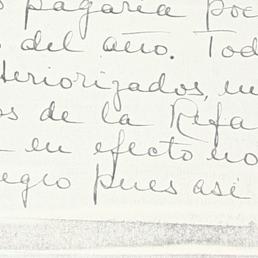 pagaria poc
s del año. Tod
teriorizados, un
os de la Rifa
en efecto no
egro pues así